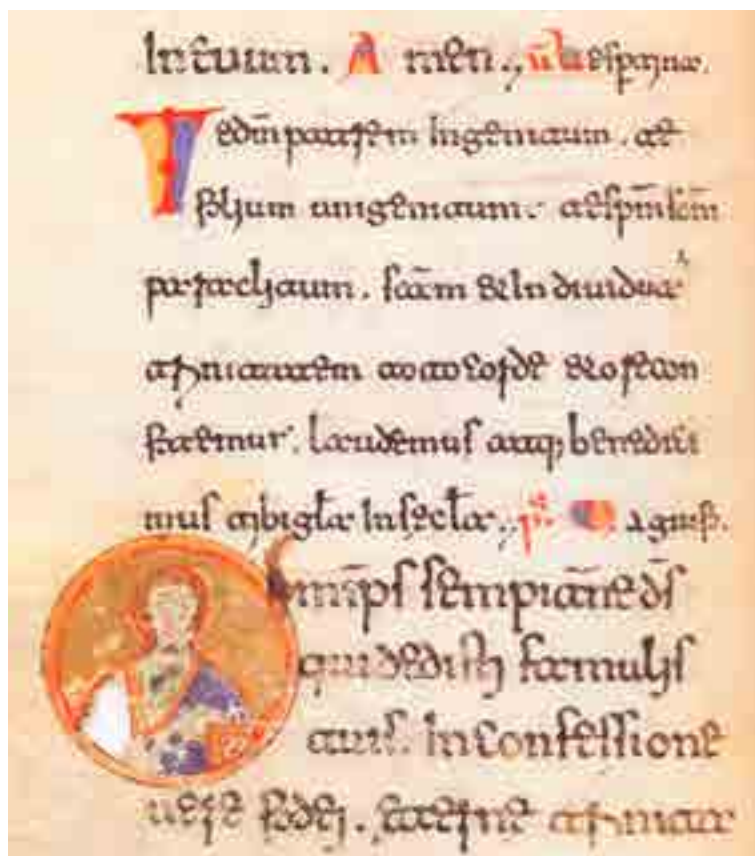 In euum. A men.
Te dm̄ patrem Ingenitum. te
filium unigenitum. te spm̄ scm̄
paraclitum. scām & Indiuidua
trinitatem toto corde & ore con
fitemur. laudamus atq; benedici
mus tibi gła In secła.
Omīps sempitāne ds̄
qui dedisti famulis
tuis. In confessione
uere fidei. eterne trinita